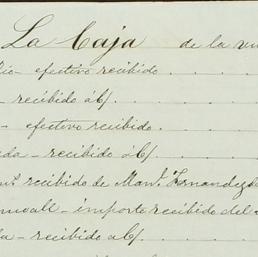 La Caja de la
efectivo recibido
recibido á C/
efectivo recibido
da - recibido á C/
recibido de Man.l Fernandez
importe recibido del
recibido a C/